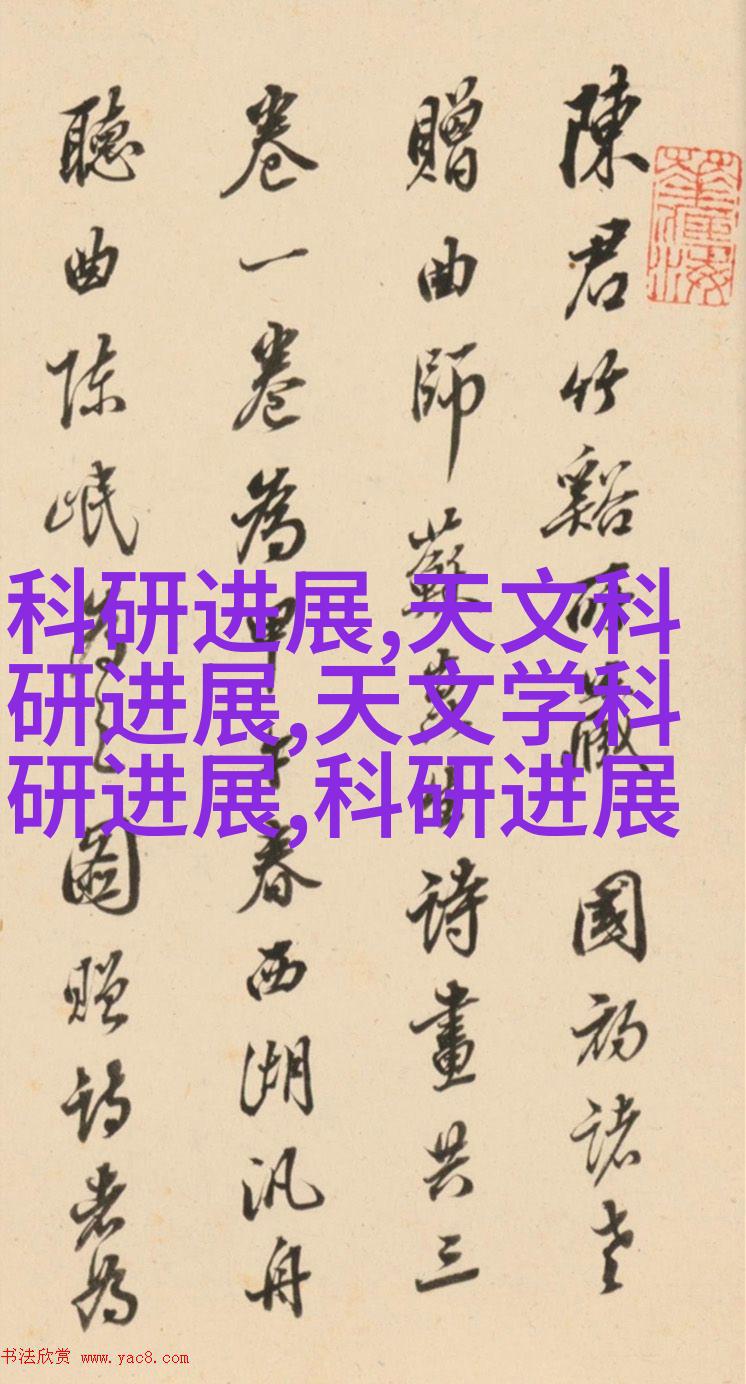 陳君竹谿所藏國初諸老
贈曲師蘇崑生詩畫共三
卷一卷為甲午春西湖汎舟
聽曲陳岷為之圖贈詩者為
科研进展,天文科
研进展,天文学科
研进展,科研进展
书法欣赏 www.yac8.com